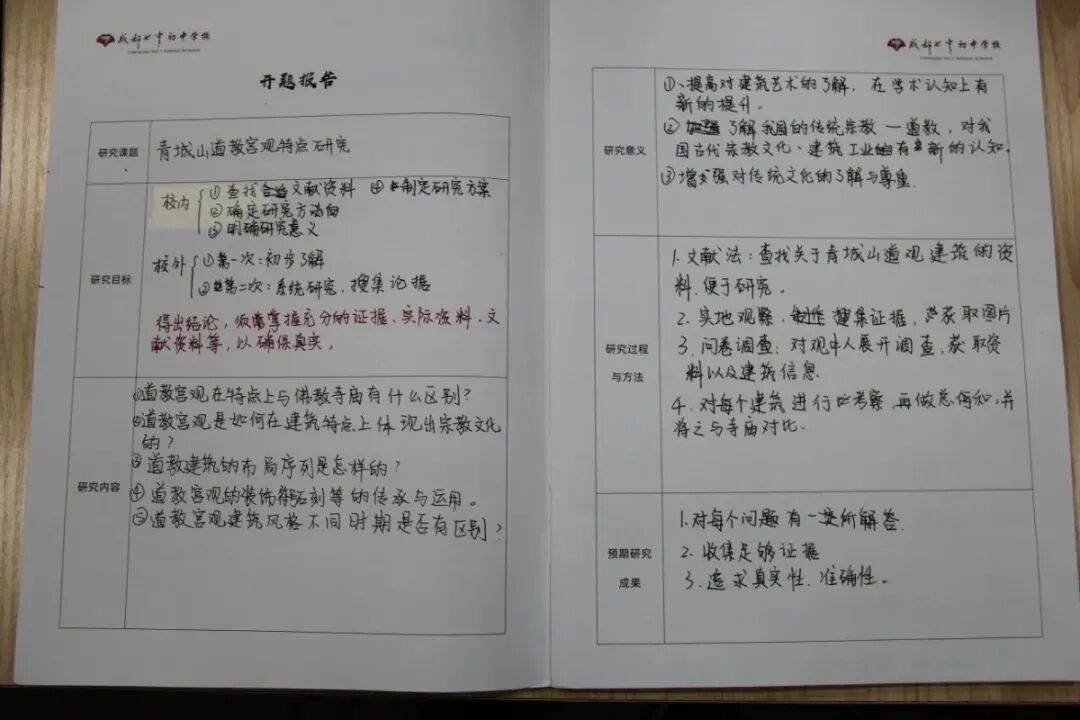 成都七中初中学校
开题报告
研究课题
青城山道教宫观特点研究
研究目标
校内
①查找文献资料 ④制定研究方案
②确定研究方向
③明确研究意义
校外
①第一次：初步了解
②第二次：系统研究，搜集论据
得出结论，须掌握充分的证据、实际资料、文
献资料等，以确保真实。
研究内容
①道教宫观在特点上与佛教寺庙有什么区别？
②道教宫观是如何在建筑特点上体现出宗教文化
的？
③道教建筑的布局序列是怎样的？
④道教宫观的装饰石刻等的传承与运用。
⑤道教宫观建筑风格不同时期是否有区别？
成都七中初中学校
研究意义
①、提高对建筑艺术的了解，在学术认知上有
新的提升。
②了解我国的传统宗教—道教，对我
国古代宗教文化、建筑工业有新的认知。
③增强对传统文化的了解与尊重
研究过程
与方法
1.文献法：查找关于青城山道观建筑的资
料，便于研究。
2.实地观察，搜集证据，获取图片
3.问卷调查：对观中人展开调查，获取资
料以及建筑信息
4.对每个建筑进行考察，再做总结，并
将之与寺庙对比.
预期研究
成果
1.对每个问题有所解答.
2.收集足够证据
3.追求真实性、准确性。